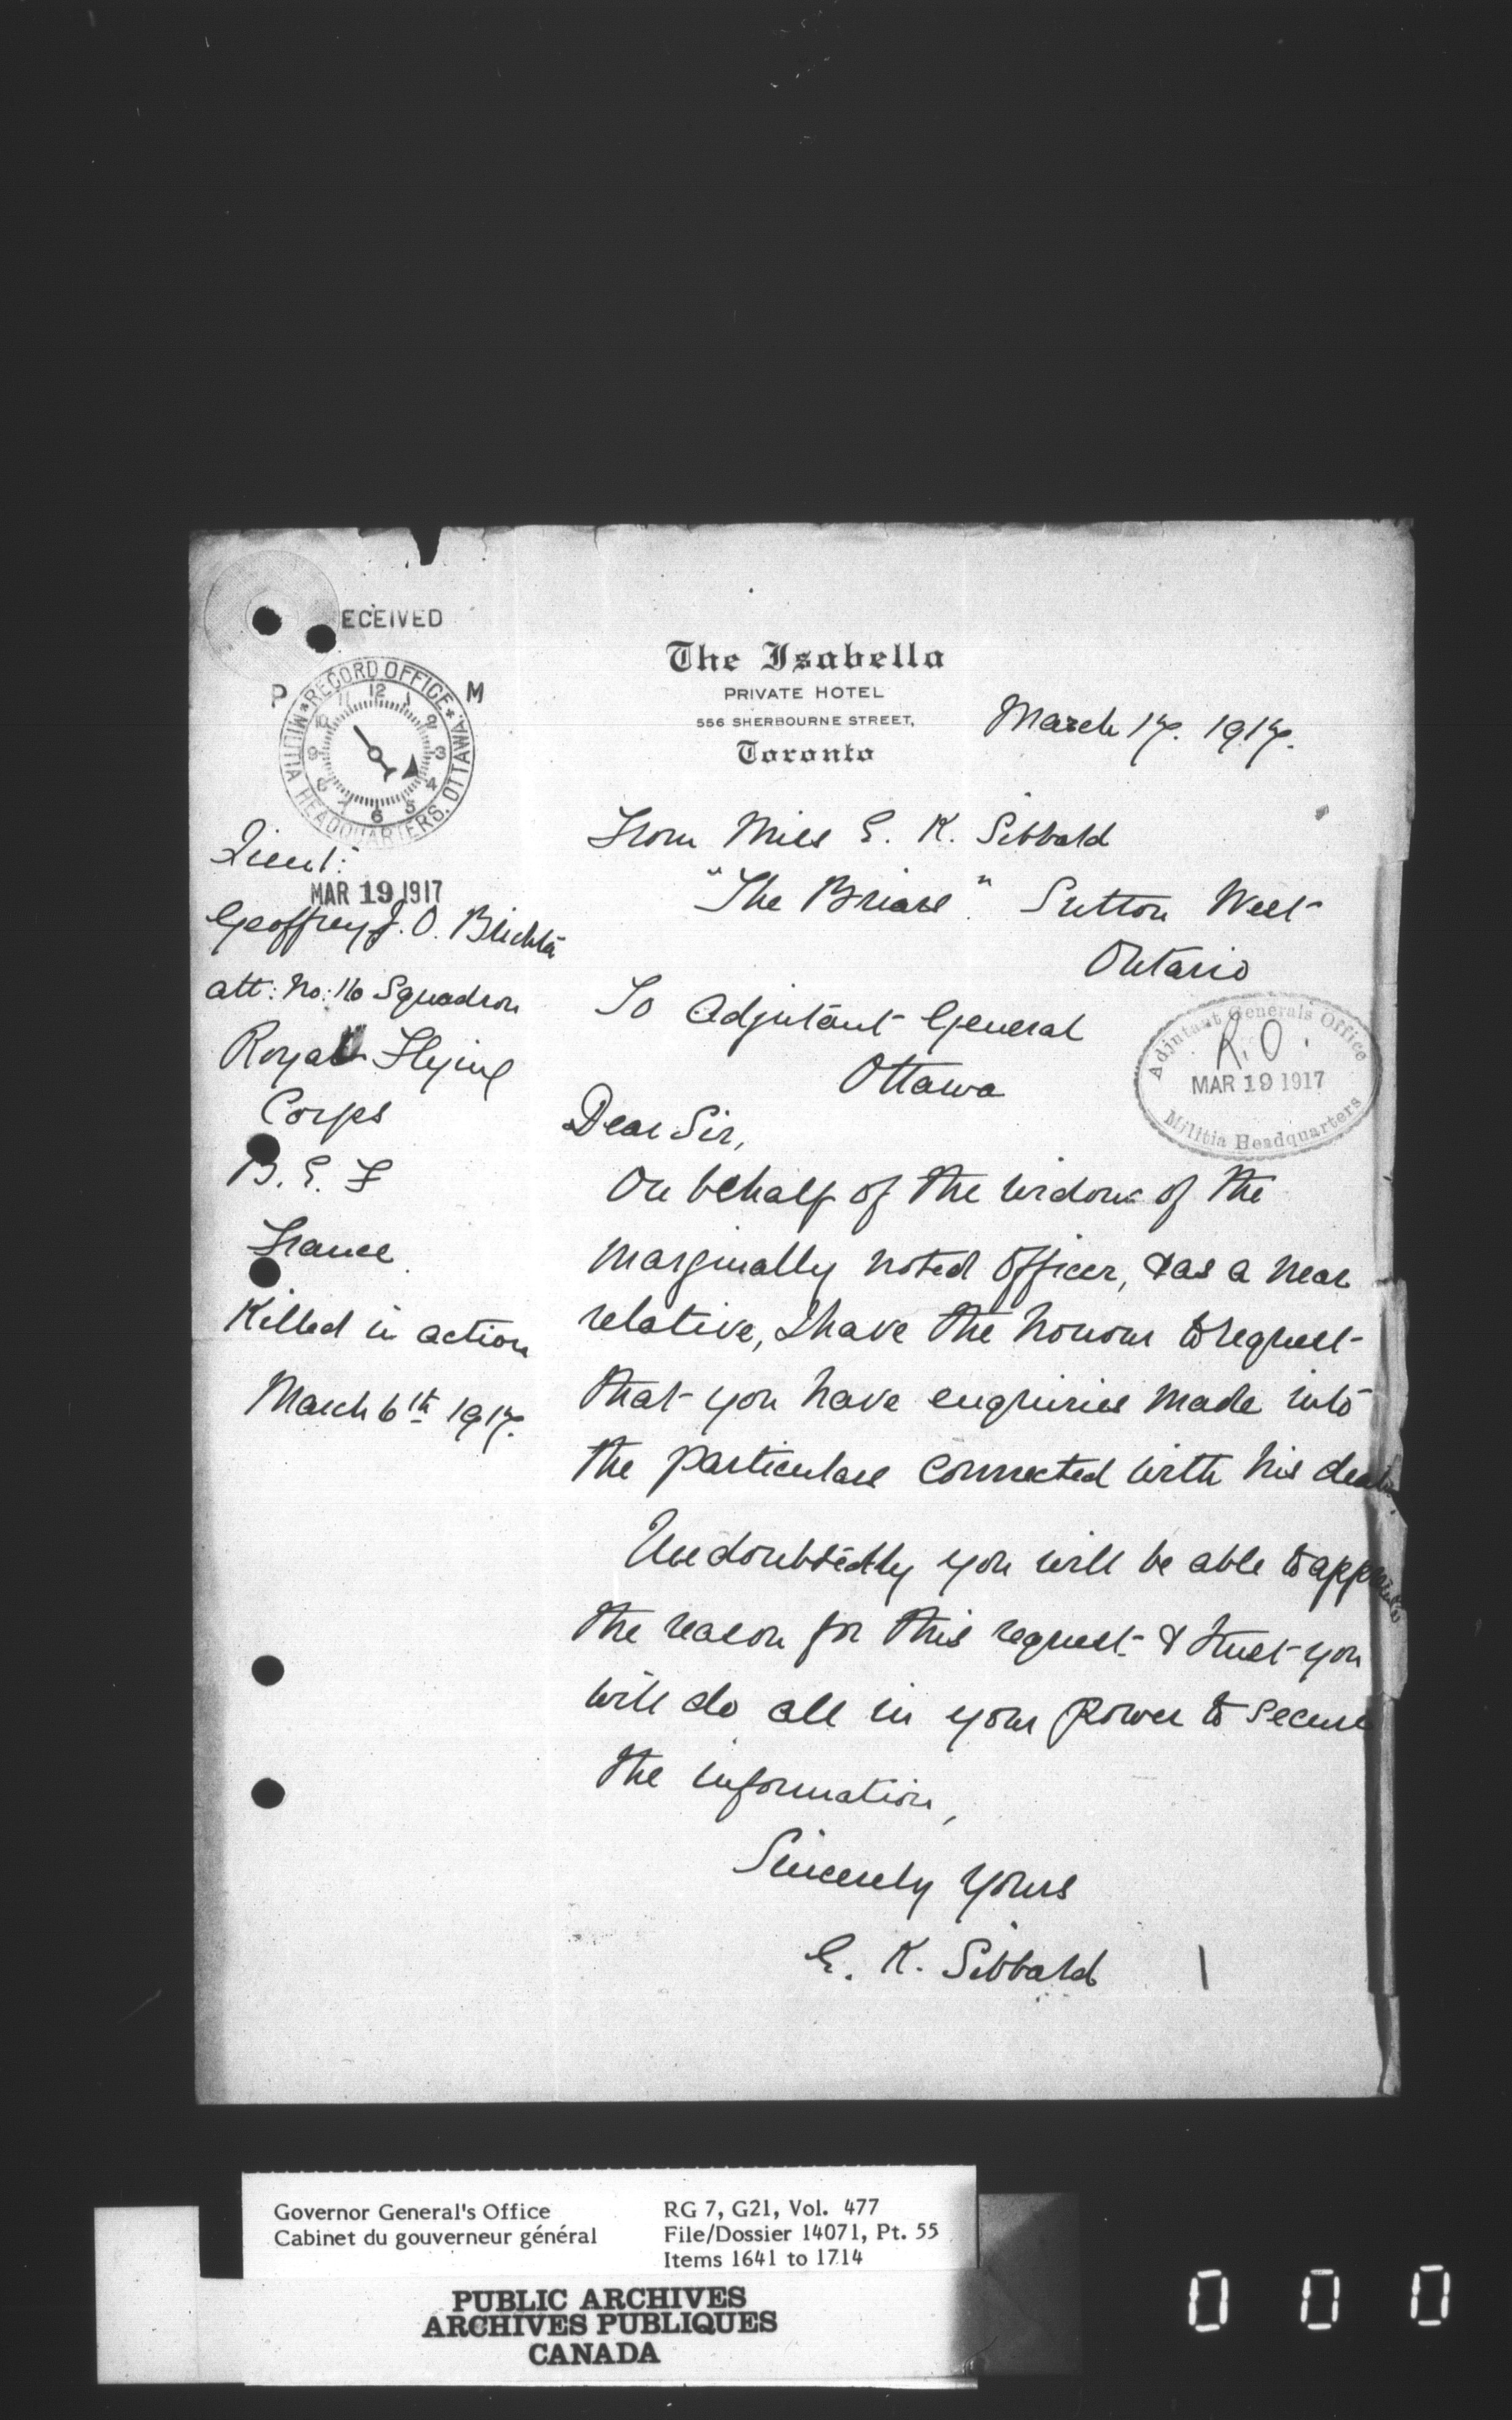 ECEIVED
P M
RECORD OFFICE
MILITIA HEADQUARTERS. OTTAWA.
12 1 2 3 4 5 6 7 8 9 10 11
MAR 19 1917
The Isabella
PRIVATE HOTEL
556 SHERBOURNE STREET,
Toronto
March 17. 1917.
Lieut:
Geoffrey J. O.
att: No: 16 Squadron
Royal Flying
Corps
B. E. F
France
Killed in action
March 6th 1917.
From Miss E. K. Sibbald
"The Briars" Sutton West
Ontario
To Adjutant General
Ottawa
Adjutant Generals Office
R.O.
MAR 19 1917
Militia Headquarters
Dear Sir,
On behalf of the widow of the
marginally noted Officer, & as a near
relative, I have the honour to request
that you have enquiries made into
the particulars connected with his death.
Undoubtedly you will be able to appreciate
the reason for this request & trust you
will do all in your power to secure
the information,
Sincerely yours
E. K. Sibbald
Governor General's Office
Cabinet du gouverneur général
RG 7, G21, Vol. 477
File/Dossier 14071, Pt. 55
Items 1641 to 1714
PUBLIC ARCHIVES
ARCHIVES PUBLIQUES
CANADA
0 0 0